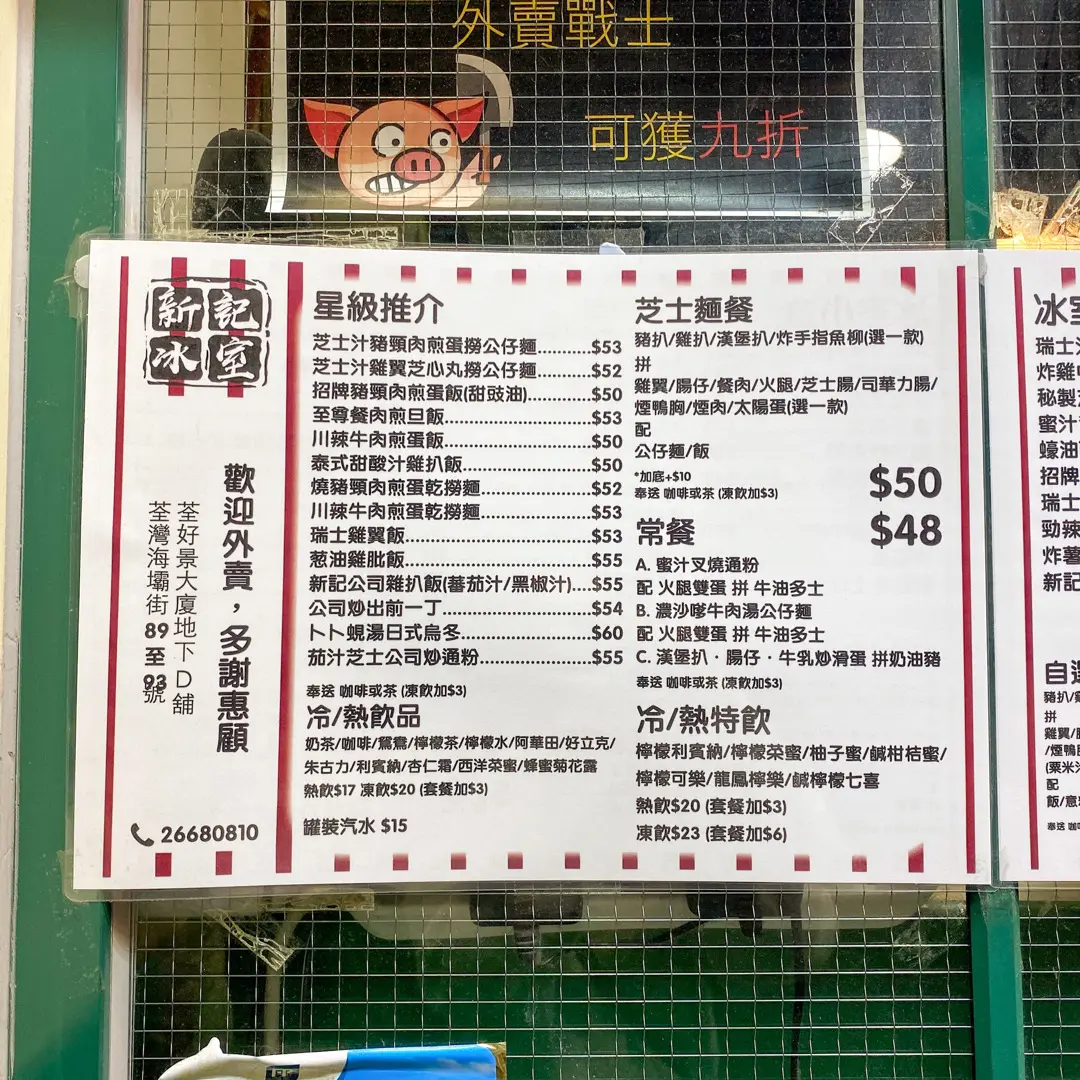 外賣戰士
可獲九折
新記
冰室
歡迎外賣，多謝惠顧
荃好景大廈地下D舖
荃灣海壩街89至93號
26680810
星級推介
芝士汁豬頸肉煎蛋撈公仔麵..........$53
芝士汁雞翼芝心丸撈公仔麵..........$52
招牌豬頸肉煎蛋飯(甜豉油)...........$50
至尊餐肉煎旦飯..........$53
川辣牛肉煎蛋飯..........$50
泰式甜酸汁雞扒飯..........$50
燒豬頸肉煎蛋乾撈麵..........$52
川辣牛肉煎蛋乾撈麵..........$53
瑞士雞翼飯..........$53
葱油雞肶飯..........$55
新記公司雜扒飯(蕃茄汁/黑椒汁)....$55
公司炒出前一丁..........$54
卜卜蜆湯日式烏冬..........$60
茄汁芝士公司炒通粉..........$55
奉送 咖啡或茶 (凍飲加$3)
冷/熱飲品
奶茶/咖啡/鴛鴦/檸檬茶/檸檬水/阿華田/好立克/
朱古力/利賓納/杏仁霜/西洋菜蜜/蜂蜜菊花露
熱飲$17 凍飲$20 (套餐加$3)
罐裝汽水 $15
芝士麵餐
豬扒/雞扒/漢堡扒/炸手指魚柳(選一款)
拼
雞翼/腸仔/餐肉/火腿/芝士腸/司華力腸/
煙鴨胸/煙肉/太陽蛋(選一款)
配
公仔麵/飯
*加底+$10
奉送 咖啡或茶 (凍飲加$3)
$50
常餐
$48
A. 蜜汁叉燒通粉
配 火腿雙蛋 拼 牛油多士
B. 濃沙嗲牛肉湯公仔麵
配 火腿雙蛋 拼 牛油多士
C. 漢堡扒．腸仔．牛乳炒滑蛋 拼奶油豬
奉送 咖啡或茶 (凍飲加$3)
冷/熱特飲
檸檬利賓納/檸檬菜蜜/柚子蜜/鹹柑桔蜜/
檸檬可樂/龍鳳檸樂/鹹檸檬七喜
熱飲$20 (套餐加$3)
凍飲$23 (套餐加$6)
冰
瑞士
炸雞
秘製
蜜汁
蠔油
招牌
瑞士
勁辣
炸薯
新記
自選
豬扒/
拼
雞翼/
/煙鴨
(粟米
配
飯/意
奉送 咖